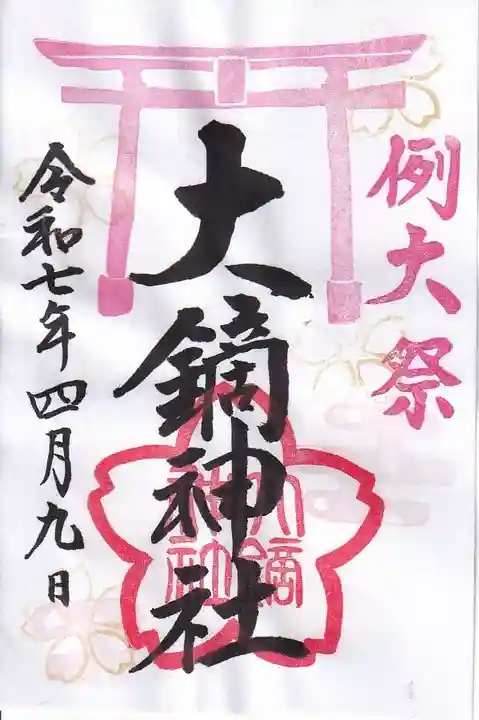 例大祭
大鏑神社
大鏑
神社
令和七年四月九日